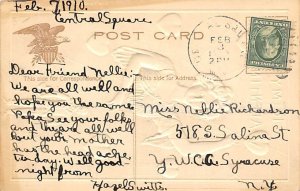 Feb. 7, 1910.
Central Square
POST CARD
This side for Correspondence.
This side for Address.
Dear Friend Nellie:-
We are all well and
hope you the same
Papa See your folks
and they are all well
but your mother
has the head ache
today. Well good
night from
Hazel
Miss Nellie Richardson
518 S. Salina St
Y.W.C.A Syracuse
N.Y.
FEB